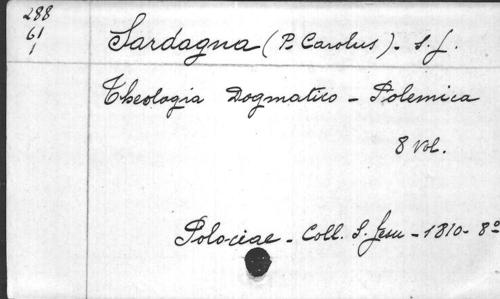 288
61
1
Sardagna (P. Carolus) - S. J.
Theologia Dogmatico - Polemica
8 vol.
Polociae - Coll. S. Jesu - 1810 - 8º